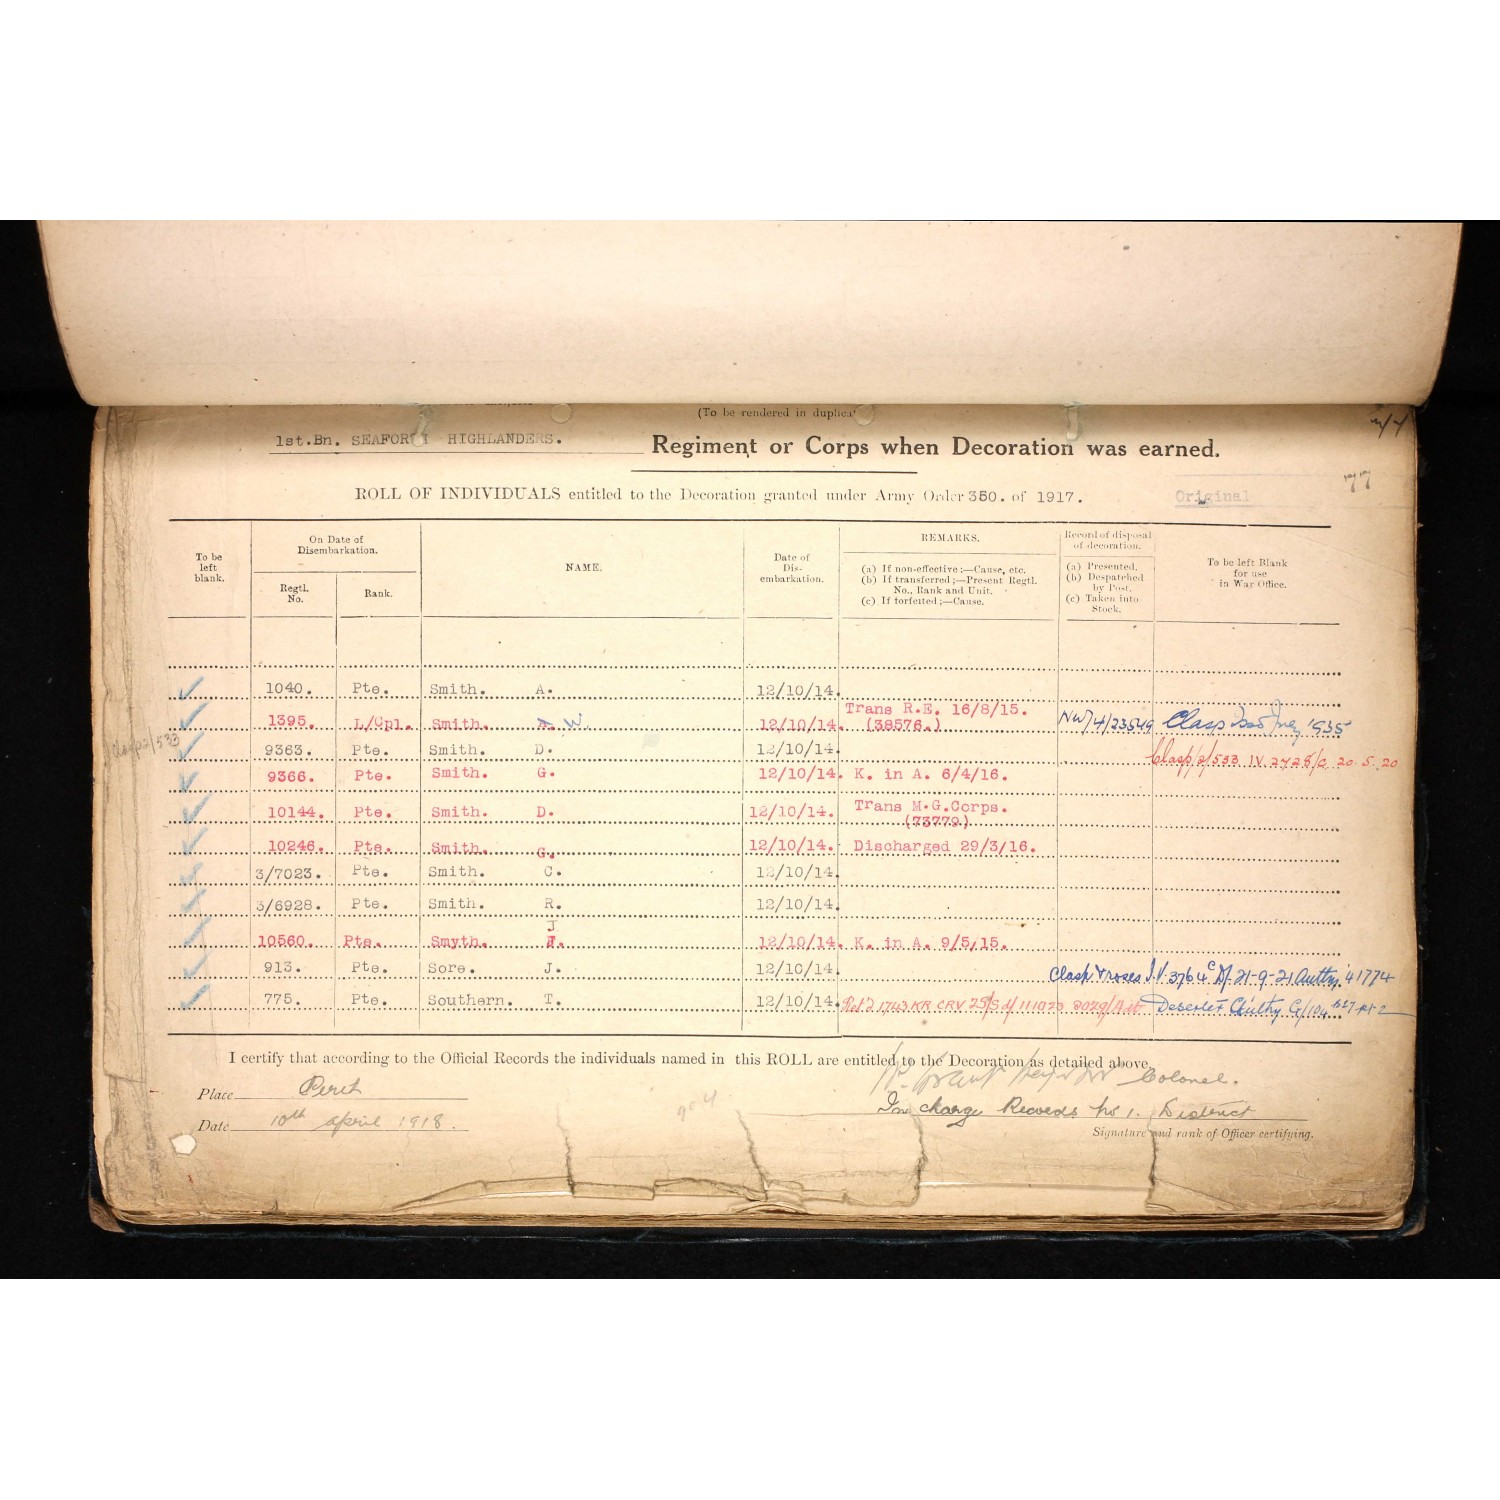 (To be rendered in duplica
1st.Bn. SEAFORTH HIGHLANDERS. Regiment or Corps when Decoration was earned.
77
ROLL OF INDIVIDUALS entitled to the Decoration granted under Army Order 350. of 1917. Original
To be left blank.
On Date of Disembarkation.
Regtl. No.
Rank.
NAME.
Date of Dis-embarkation.
REMARKS.
(a) If non-effective:—Cause, etc.
(b) If transferred;—Present Regtl. No., Rank and Unit.
(c) If forfeited;—Cause.
Record of disposal of decoration.
(a) Presented.
(b) Despatched by Post.
(c) Taken into Stock.
To be left Blank for use in War Office.
1040. Pte. Smith. A. 12/10/14.
1395. L/Cpl. Smith. A. W. 12/10/14. Trans R.E. 16/8/15. (38576.) NW/4/23549 Clasp 1935
Clasp2/533 9363. Pte. Smith. D. 12/10/14. Clasp/2/533 IV 2426/C 20.5.20
9366. Pte. Smith. G. 12/10/14. K. in A. 6/4/16.
10144. Pte. Smith. D. 12/10/14. Trans M.G.Corps. (73779.)
10246. Pte. Smith. G. 12/10/14. Discharged 29/3/16.
3/7023. Pte. Smith. C. 12/10/14.
3/6928. Pte. Smith. R. 12/10/14.
10560. Pte. Smyth. J. 12/10/14. K. in A. 9/5/15.
913. Pte. Sore. J. 12/10/14. Clasp & roses I.V. 3764 21-9-21 Authy 41774
775. Pte. Southern. T. 12/10/14. 1743 KR CRV Deserter Authy
I certify that according to the Official Records the individuals named in this ROLL are entitled to the Decoration as detailed above.
Place Perth
Colonel.
Date 10th April 1918.
I/c charge Records No 1. District
Signature and rank of Officer certifying.